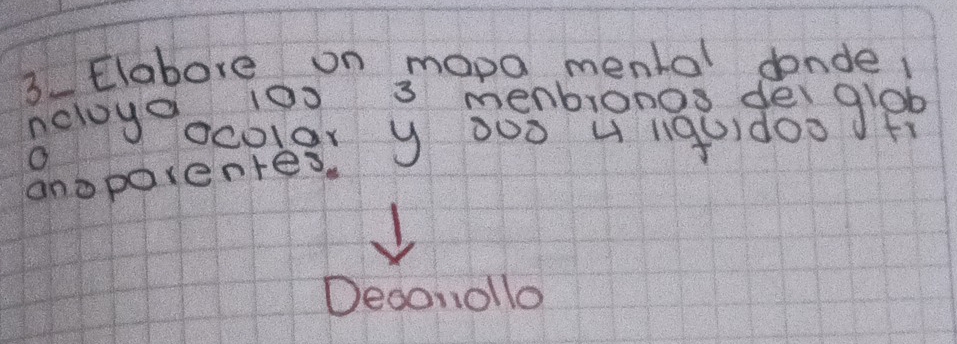 3_ Elabore un mapa mental donde i
ncluya los 3 menbranas del glob
o ocular y sus 4 liquidos tr
ansparentes.
Desarrollo